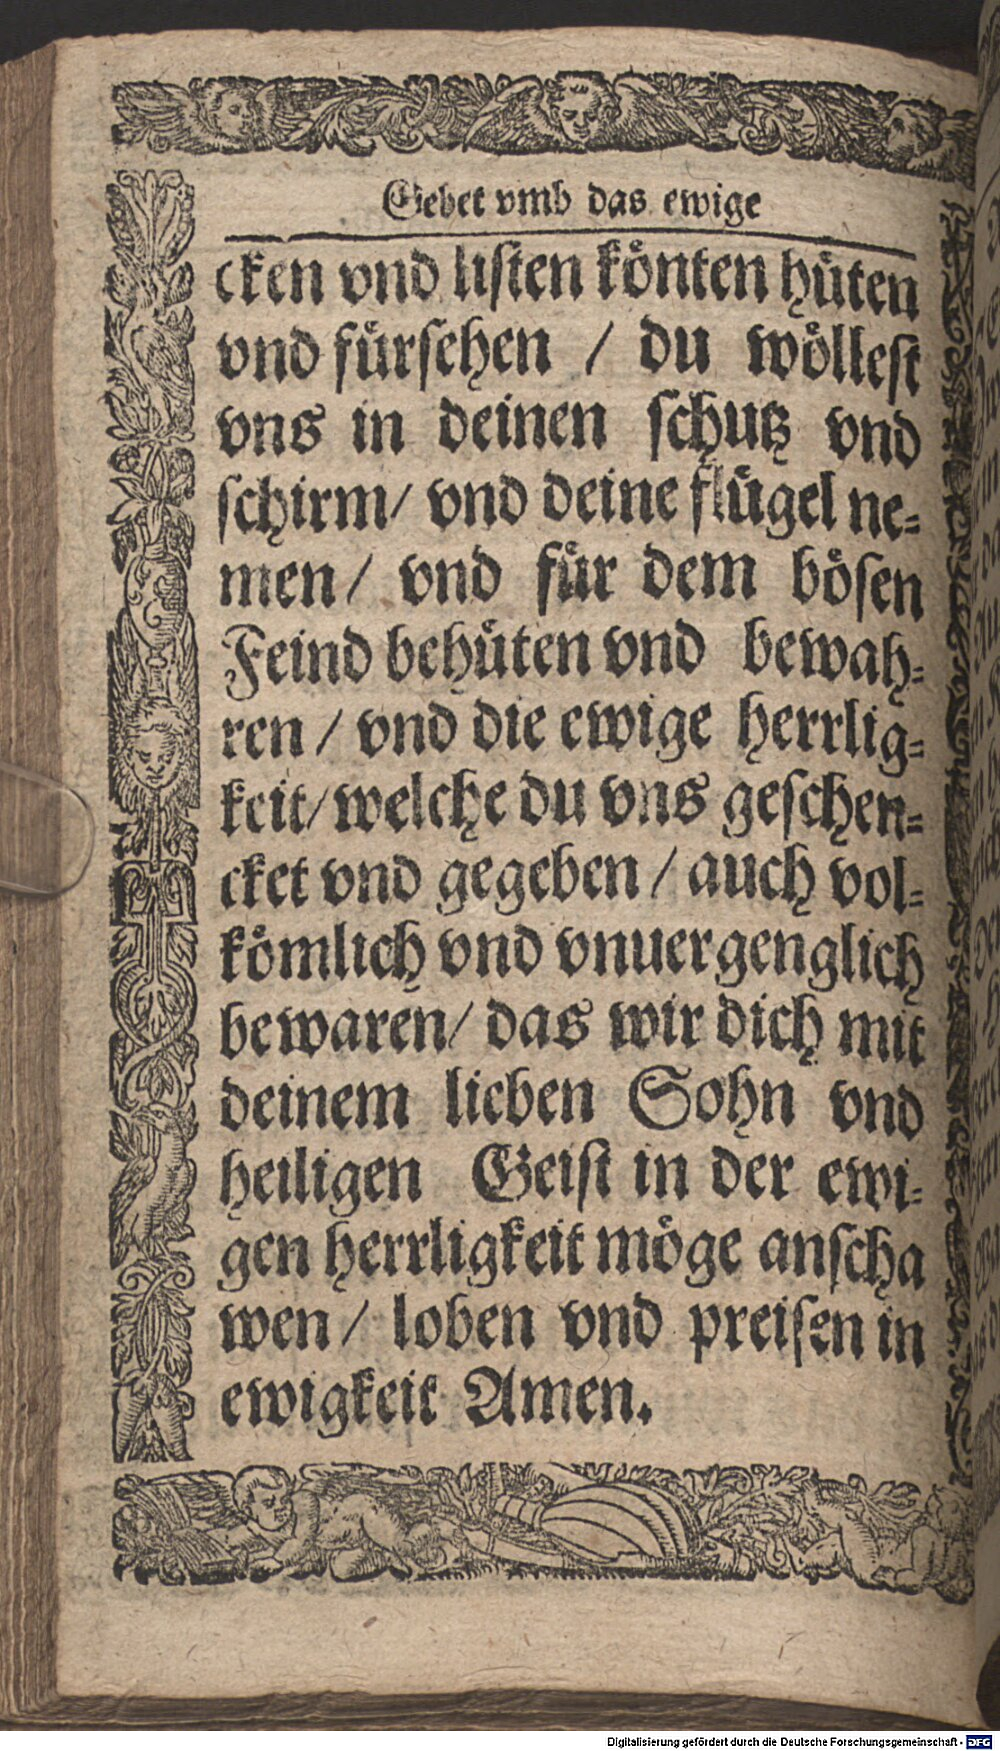 Gebet vmb das ewige
cken vnd listen koͤnten huͤten
vnd fuͤrsehen / du woͤllest
vns in deinen schutz vnd
schirm/ vnd deine fluͤgel ne-
men/ vnd fuͤr dem boͤsen
Feind behuͤten vnd bewah-
ren / vnd die ewige herrlig-
keit/ welche du vns geschen-
cket vnd gegeben / auch vol-
koͤmlich vnd vnuergenglich
bewaren/ das wir dich mit
deinem lieben Sohn vnd
heiligen Geist in der ewi-
gen herrligkeit moͤge anscha
wen/ loben vnd preisen in
ewigkeit Amen.
Digitalisierung gefördert durch die Deutsche Forschungsgemeinschaft - DFG